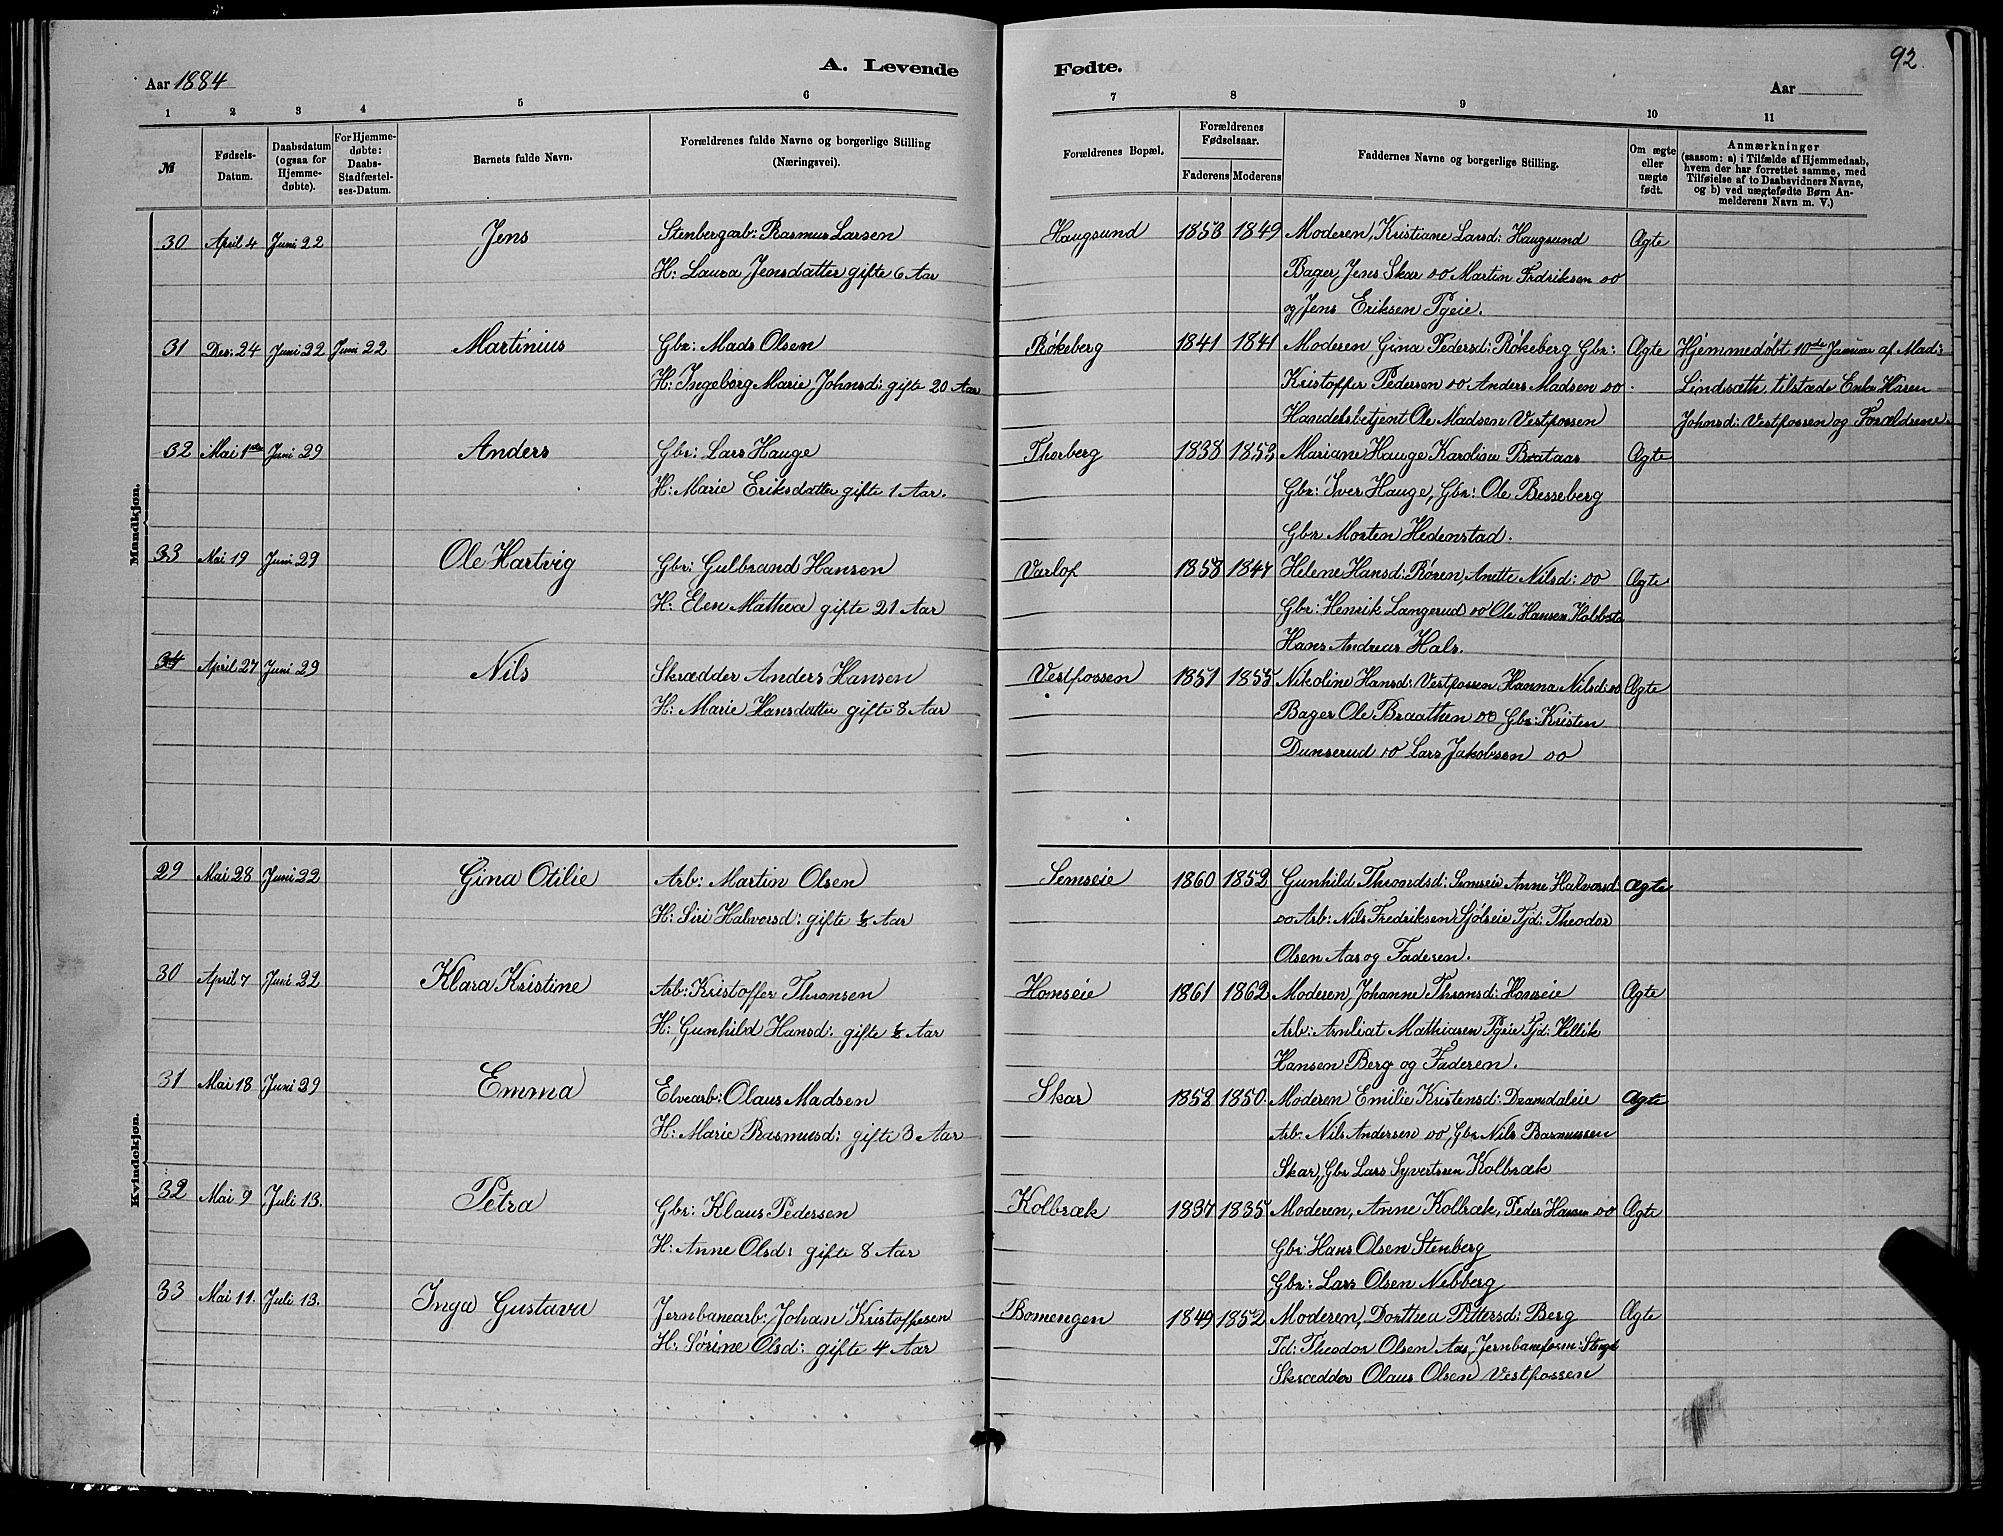 92.
A. Levende Fødte.
Aar 1884
Aar
1 2 3 4 5 6 7 8 9 10 11
№
Fødsels-Datum.
Daabsdatum (ogsaa for Hjemme-døbte).
For Hjemme-døbte: Daabs-Stadfæstel-ses-Datum.
Barnets fulde Navn.
Forældrenes fulde Navne og borgerlige Stilling (Næringsvei).
Forældrenes Bopæl.
Forældrenes Fødselsaar.
Faderens Moderens
Faddernes Navne og borgerlige Stilling.
Om ægte eller uægte født.
Anmærkninger (saasom: a) i Tilfælde af Hjemmedaab, hvem der har forrettet samme, med Tilføielse af to Daabsvidners Navne, og b) ved uægtefødte Børn An-melderens Navn m. V.)
Mandkjøn.
30 April 4 Juni 22 Jens Stenbergarb: Rasmus Larsen Haugsund 1853 1849 Moderen, Kristiane Larsd: Haugsund Ægte
H: Laura Jensdatter gifte 6 Aar Bager Jens Skar oo Martin Fredriksen oo
og Jens Eriksen
31 Des: 24 Juni 22 Juni 22 Martinius Gbr: Mads Olsen Røkeberg 1841 1841 Moderen, Gina Pedersd: Røkeberg Gbr: Ægte Hjemmedøbt 10de Januar af Mad:
H: Ingeborg Marie Johnsd: gifte 20 Aar Kristoffer Pedersen oo Anders Madsen oo Lindsæth, tilstæde Enke Karen
Handelsbetjent Ole Madsen Vestfossen Johnsd: Vestfossen og Forældrene.
32 Mai 1ste Juni 29 Anders Gbr: Lars Hauge Thorberg 1838 1853 Mariane Hauge Karoline Brataas Ægte
H: Marie Eriksdatter gifte 1 Aar. Gbr: Iver Hauge, Gbr: Ole Besseberg
Gbr Morten Hedenstad.
33 Mai 19 Juni 29 Ole Hartvig Gbr: Gulbrand Hansen Varlof 1858 1847 Helene Hansd: Røren, Anette Nilsd: oo Ægte
H: Elen Mathea gifte 21 Aar Gbr: Henrik Langerud oo Ole Hansen
Hans Andreas Hals.
34 April 27 Juni 29 Nils Skrædder Anders Hansen Vestfossen 1851 1855 Nikoline Hansd: Vestfossen Hanna Nilsd: oo Ægte
H: Marie Hansdatter gifte 8 Aar Bager Ole Braathen oo, Gbr: Kristen
Dunserud oo Lars Jakobsen oo
Kvindekjøn.
29 Mai 28 Juni 22 Gina Otilie Arb: Martin Olsen Semseie 1860 1852 Gunhild Throndsd: Semseie Anne Halvorsd: Ægte
H: Siri Halvorsd: gifte ½ Aar oo Arb: Nils Fredriksen Sjølseie Tjd: Theodor
Olsen Aas og Faderen.
30 April 7 Juni 22 Klara Kristine Arb: Kristoffer Thronsen Homseie 1861 1862 Moderen, Johanne Thronsd: Homseie Ægte
H: Gunhild Hansd: gifte ½ Aar Arb: Mathiasen Tjd: Hellik
Hansen Berg og Faderen.
31 Mai 18 Juni 29 Emma Elvearb: Olaus Madsen Skar 1852 1850 Moderen Emilie Kristensd: Dramdaleie Ægte
H: Marie Rasmusd: gifte 3 Aar Arb: Nils Andersen oo, Gbr Nils Rasmussen
Skar, Gbr Lars Syvertsen Kolbræk
32 Mai 9 Juli 13. Petra Gbr: Klaus Pedersen Kolbræk 1837 1835 Moderen, Anne Kolbræk, Peder Hansen oo Ægte
H: Anne Olsd: gifte 8 Aar Gbr: Hans Olsen Stenberg
Gbr: Lars Olsen Nebberg
33 Mai 11. Juli 13. Inga Gustava Jernbanearb: Johan Kristoffesen Bomengen 1849 1852 Moderen, Dorthea Pettersd: Berg Ægte
H: Sørine Olsd: gifte 4 Aar Td: Theodor Olsen Aas, Jernbaneform:
Skrædder Olaus Olsen Vestfossen